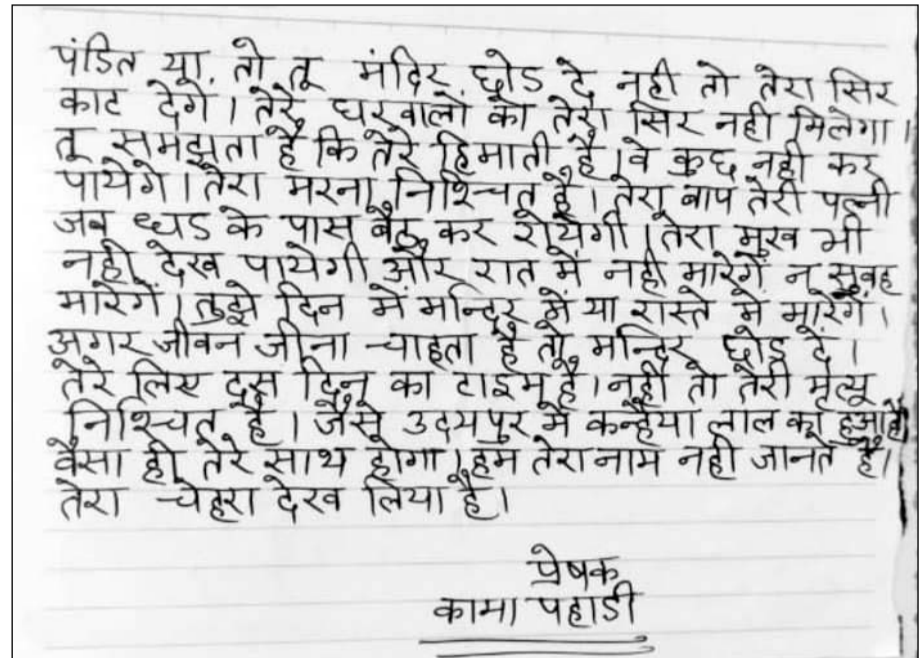 पंडित या तो तू मंदिर छोड दे नही तो तेरा सिर
काट देगे। तेरे घरवालो को तेरा सिर नही मिलेगा।
तू समझता है कि तेरे हिमाती है। वे कुछ नही कर
पायेगे। तेरा मरना निश्चित है। तेरा बाप तेरी पत्नी
जब ध्धड के पास बैठ कर रोयेगी। तेरा मुख भी
नही देख पायेगी और रात में नही मारेगें न सुवह
मारेगें। तुझे दिन में मन्दिर में या रास्ते मे मारेगें।
अगर जीवन जीना चाहता है तो मन्दिर छोड दे।
तेरे लिए दस दिन का टाइम है। नहीं तो तेरी मृत्यू
निश्चित है। जैसे उदयपुर में कन्हैया लाल का हुआ है
वैसा ही तेरे साथ होगा। हम तेरा नाम नही जानते है।
तेरा चेहरा देख लिया है।
प्रेषक
कामा पहाडी